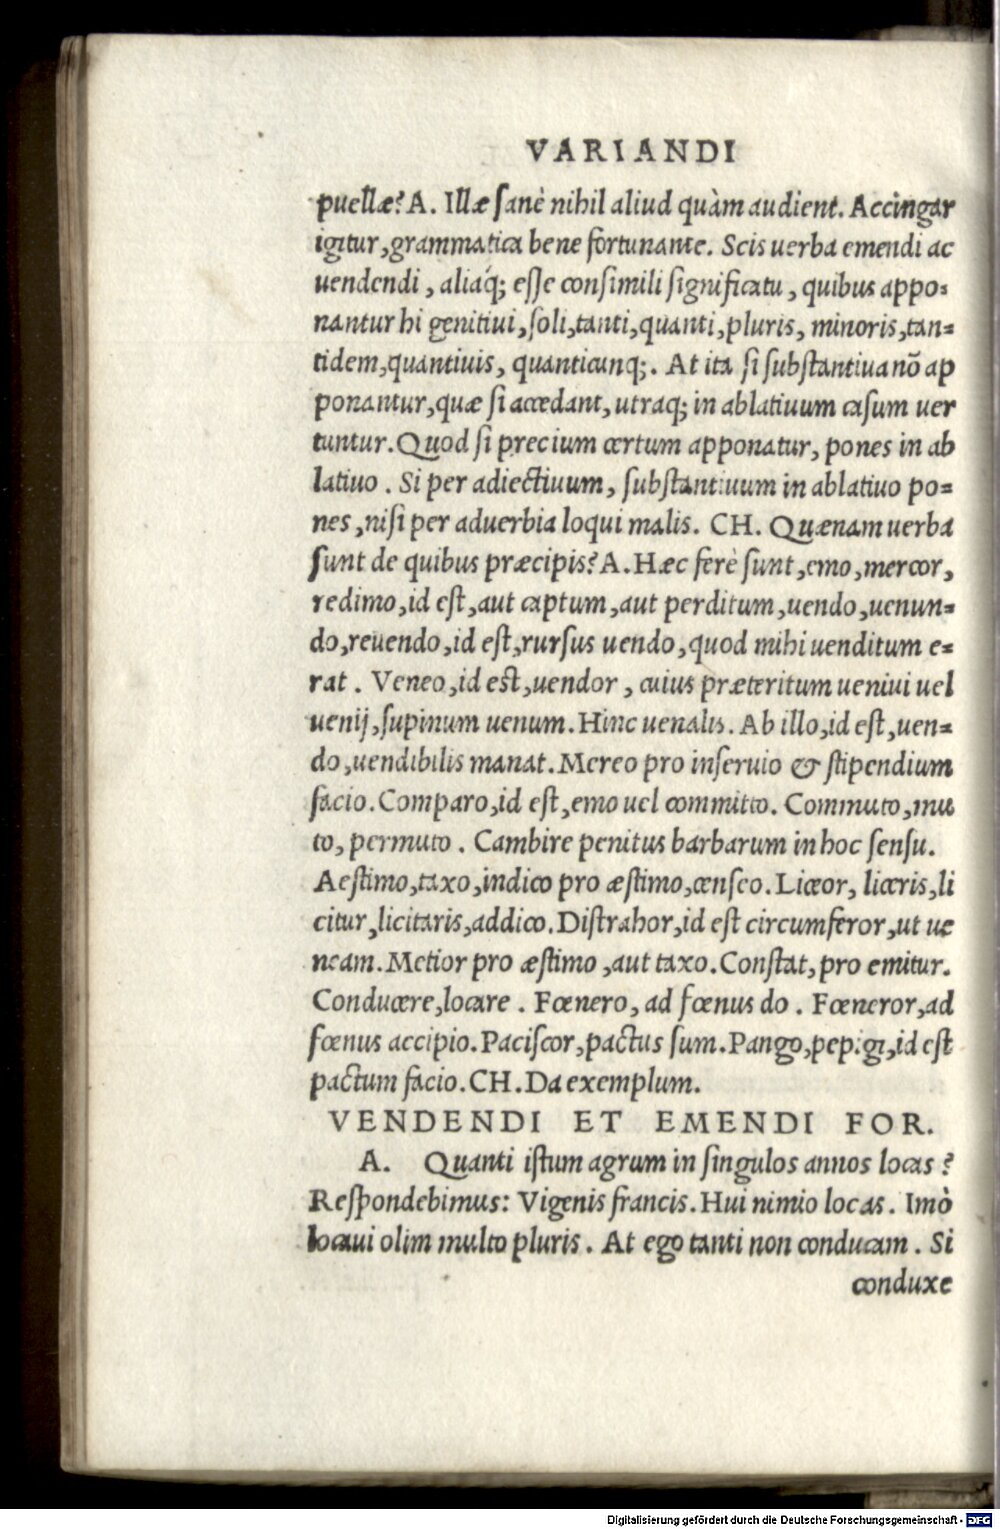 VARIANDI
puellæ? A. Illæ sanè nihil aliud quàm audient. Accingar
igitur, grammatica bene fortunante. Scis uerba emendi ac
uendendi, aliaq́; esse consimili significatu, quibus appo-
nantur hi genitiui, soli, tanti, quanti, pluris, minoris, tan-
tidem, quantiuis, quanticunq;. At ita si substantiua nõ ap
ponantur, quæ si accedant, utraq; in ablatiuum casum uer
tuntur. Quod si precium certum apponatur, pones in ab
latiuo. Si per adiectiuum, substantiuum in ablatiuo po-
nes, nisi per aduerbia loqui malis. CH. Quænam uerba
sunt de quibus præcipis? A. Hæc ferè sunt, emo, mercor,
redimo, id est, aut captum, aut perditum, uendo, uenun-
do, reuendo, id est, rursus uendo, quod mihi uenditum e-
rat. Veneo, id est, uendor, cuius præteritum ueniui uel
uenij, supinum uenum. Hinc uenalis. Ab illo, id est, uen-
do, uendibilis manat. Mereo pro inseruio & stipendium
facio. Comparo, id est, emo uel committo. Commuto, mu
to, permuto. Cambire penitus barbarum in hoc sensu.
Aestimo, taxo, indico pro æstimo, censeo. Liceor, liceris, li
citur, licitaris, addico. Distrahor, id est circumferor, ut ue
neam. Metior pro æstimo, aut taxo. Constat, pro emitur.
Conducere, locare. Fœnero, ad fœnus do. Fœneror, ad
fœnus accipio. Paciscor, pactus sum. Pango, pepigi, id est
pactum facio. CH. Da exemplum.
VENDENDI ET EMENDI FOR.
A. Quanti istum agrum in singulos annos locas?
Respondebimus: Vigenis francis. Hui nimio locas. Imò
locaui olim multo pluris. At ego tanti non conducam. Si
conduxe
Digitalisierung gefördert durch die Deutsche Forschungsgemeinschaft - DFG